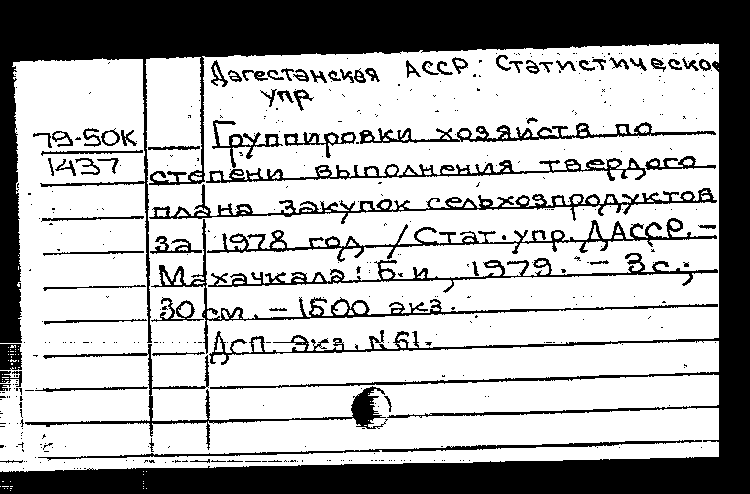 Дагестанская АССР. Статистическое
упр
79-50К
1437
Группировки хозяйств по
степени выполнения твердого
плана закупок сельхозпродуктов
за 1978 год. /Стат. упр. ДАССР. –
Махачкала: Б. и., 1979. – 8 с.;
30 см. – 1500 экз.
Дсп. Экз. N 61.